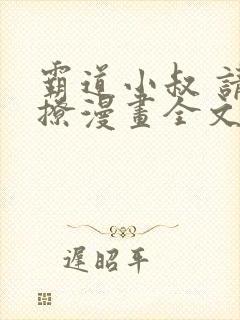 霸道小叔 請
撩漫畫全文
遲昭平